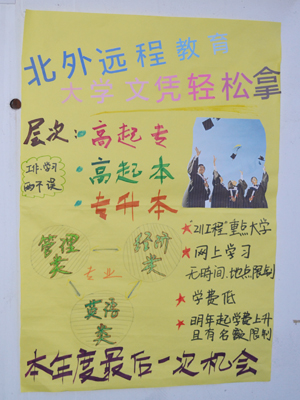 北外远程教育
大学文凭轻松拿
层次：高起专
高起本
专升本
工作.学习
两不误
管理类
经济类
专业
英语类
★"211工程"重点大学
★网上学习
无时间.地点限制
★学费低
★明年起学费上升
且有名额限制
本年度最后一次机会